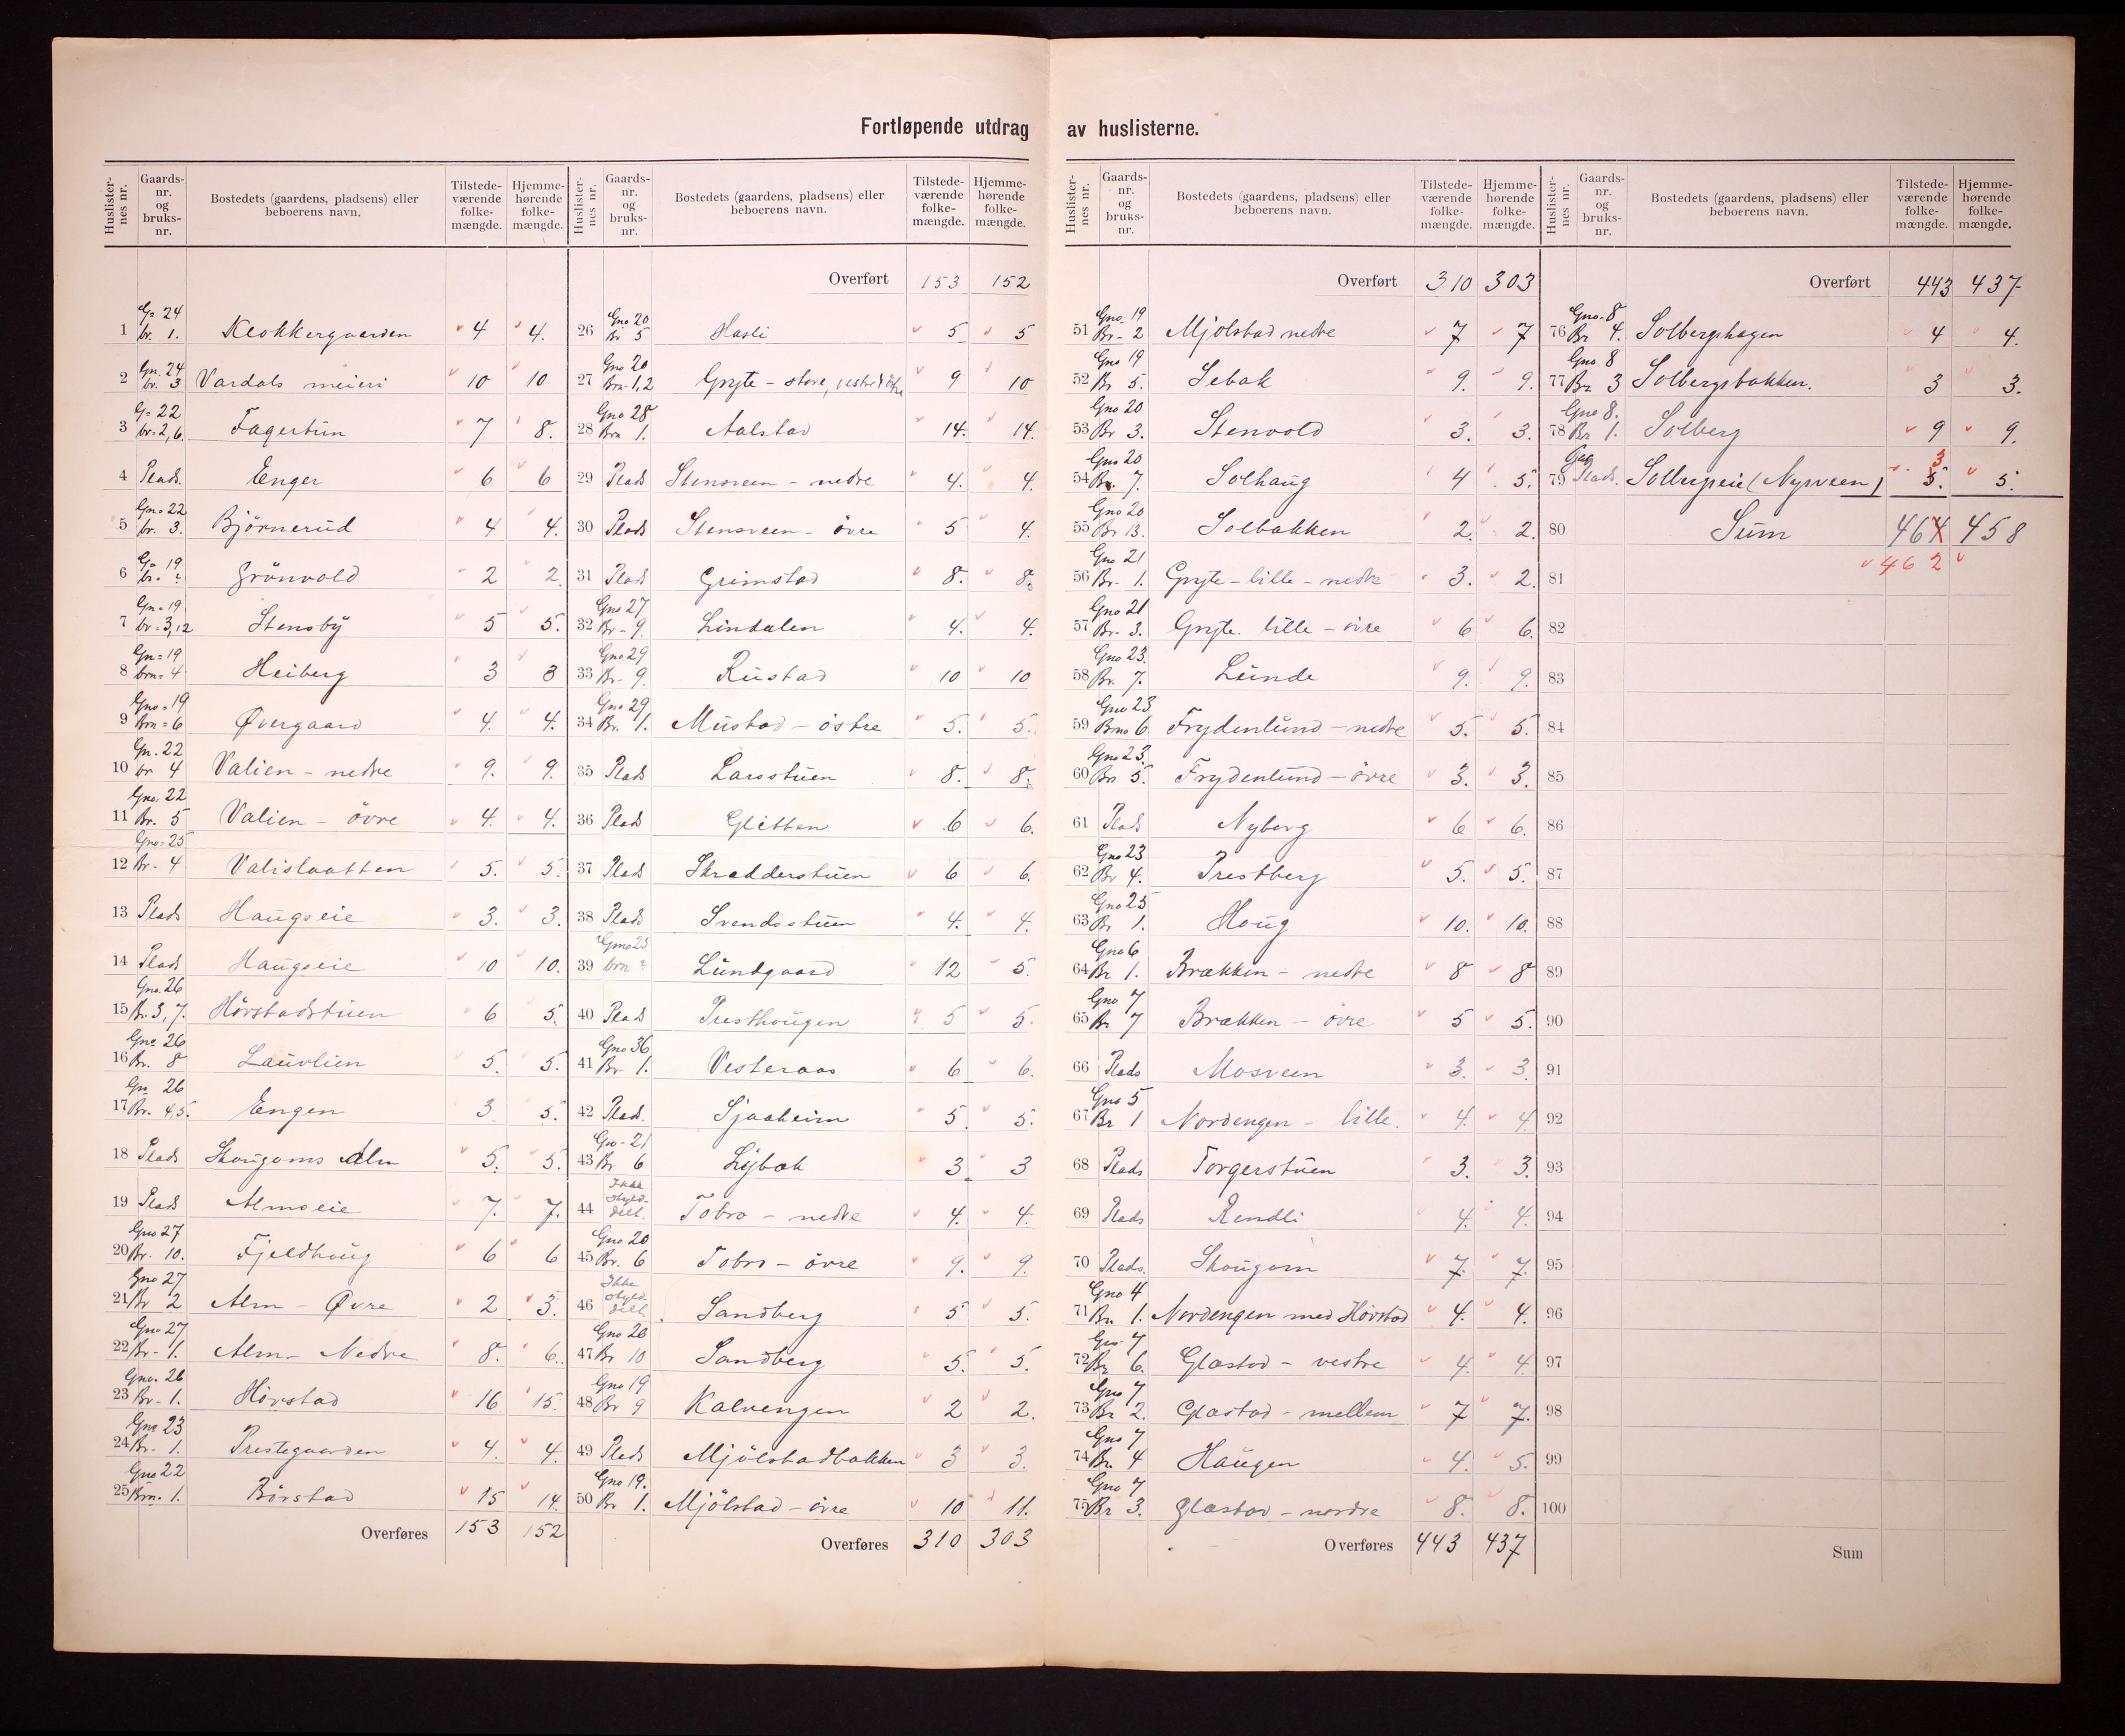 Fortløpende utdrag av huslisterne.
Huslister-nes nr. | Gaards-nr. og bruks-nr. | Bostedets (gaardens, pladsens) eller beboerens navn. | Tilstede-værende folke-mængde. | Hjemme-hørende folke-mængde.
1 G= 24 br. 1. Klokkergaarden 4 4.
2 Gn. 24 br. 3 Vardals meieri 10 10
3 G= 22 br= 2, 6. Fagertun 7 8.
4 Plads. Enger 6 6
5 Gno 22 br. 3. Björnerud 4 4.
6 Gn 19 br. ? Grönvold 2 2.
7 Gn= 19 br= 3, 12 Stensby 5 5.
8 Gn= 19 brn= 4 Heiberg 3 3
9 Gno= 19 Brn= 6 Øvergaard 4. 4.
10 Gn. 22 br 4 Valien - nedre 9. 9.
11 Gno. 22 Br. 5 Valien - övre 4. 4.
12 Gno= 25 Br. 4 Valislaatten 5. 5.
13 Plads Haugseie 3. 3.
14 Plads Haugseie 10 10.
15 Gno. 26 Br. 3, 7. Hörstadstuen 6 5.
16 Gno 26 Br. 8 Lauvlien 5. 5.
17 Gn 26 Br. 4, 5. Engen 3 5.
18 Plads Skougoms Alm 5. 5.
19 Plads Almseie 7. 7.
20 Gno 27 Br. 10. Fjeldhoug 6 6
21 Gno 27 Br 2 Alm - Øvre 2 3.
22 Gno 27 Br- 1. Alm - Nedre 8. 6.
23 Gno. 26 Br- 1. Hörstad 16 15.
24 Gno 23 Br- 1. Prestegaarden 4. 4.
25 Gno 22 Brn. 1. Börstad 15 14.
Overføres 153 152
Huslister-nes nr. | Gaards-nr. og bruks-nr. | Bostedets (gaardens, pladsens) eller beboerens navn. | Tilstede-værende folke-mængde. | Hjemme-hørende folke-mængde.
Overført 153 152
26 Gno 20 Br 5 Hasli 5 5
27 Gno 20 Brn. 1,2 Gryte - store, 9 10
28 Gno 28 Brn 1. Aalstad 14. 14.
29 Plads Stensveen - nedre 4. 4.
30 Plads Stensveen - övre 5 4.
31 Plads Grimstad 8. 8.
32 Gno 27 Br - 9. Lindalen 4. 4.
33 Gno 29 Br- 9. Rustad 10 10
34 Gno 29 Br. 1. Mustad - östre 5. 5.
35 Plads Larsstuen 8. 8.
36 Plads Glitten 6 6.
37 Plads Skradderstuen 6 6.
38 Plads Svendsstuen 4. 4.
39 Gno 23 brn ? Lundgaard 12 5.
40 Plads Presthougen 5 5.
41 Gno 36 Br 1. Vesteraas 6 6.
42 Plads. Sjaaheim 5 5.
43 Gno- 21 Br 6 Lybæk 3 3
44 Ikke skyld-delt. Tobro - nedre 4. 4.
45 Gno 20 Br. 6 Tobro - övre 9. 9.
46 Ikke skyld-delt. Sandberg 5 5.
47 Gno 20 Br 10 Sandberg 5. 5.
48 Gno 19 Br 9 Kalvengen 2 2.
49 Plads Mjölstadbakken 3 3.
50 Gno 19. Br 1. Mjölstad - övre 10 11.
Overføres 310 303
Huslister-nes nr. | Gaards-nr. og bruks-nr. | Bostedets (gaardens, pladsens) eller beboerens navn. | Tilstede-værende folke-mængde. | Hjemme-hørende folke-mængde.
Overført 310 303
51 Gno. 19 Br- 2 Mjölstad nedre 7 7
52 Gno 19 Br 5. Sebak 9. 9.
53 Gno 20 Br 3. Stenvold 3. 3.
54 Gno 20 Br. 7. Solhaug 4 5.
55 Gno 20 Br 13. Solbakken 2. 2.
56 Gno 21 Br- 1. Gryte - lille - nedre 3. 2.
57 Gno 21 Br- 3. Gryte. lille - övre 6 6.
58 Gno 23. Br. 7. Lunde 9. 9.
59 Gno 23 Brno 6 Frydenlund - nedre 5. 5.
60 Gno 23. Br 5. Frydenlund - övre 3. 3.
61 Plads Nyberg 6 6.
62 Gno 23 Br 4. Prestberg 5. 5.
63 Gno 25 Br 1. Houg 10. 10.
64 Gno 6 Br 1. Brækken - nedre 8 8
65 Gno 7 Br 7 Brækken - övre 5 5.
66 Plads Mosveen 3. 3.
67 Gno 5 Br 1 Nordengen - lille. 4. 4
68 Plads Torgerstuen 3. 3.
69 Plads Rendli 4. 4.
70 Plads. Skougom 7. 7.
71 Gno 4 Br. 1. Nordengen med Hörstad 4. 4.
72 Gno 7 Br 6. Glæstad - vestre 4. 4.
73 Gno 7 Br 2. Glæstad - mellem 7 7.
74 Gno 7 Br. 4 Haugen 4. 5.
75 Gno 7 Br 3. Glæstad - nordre 8. 8.
Overføres 443 437
Huslister-nes nr. | Gaards-nr. og bruks-nr. | Bostedets (gaardens, pladsens) eller beboerens navn. | Tilstede-værende folke-mængde. | Hjemme-hørende folke-mængde.
Overført 443 437
76 Gno. 8 Br 4. Solbergshagen 4 4.
77 Gno 8 Br. 3 Solbergsbakken. 3 3.
78 Gno 8. Br 1. Solberg 9 9.
79 Plads. Solbergseie (Nysveen) 5. 3 5.
80 Sum 464 458
81 462
82
83
84
85
86
87
88
89
90
91
92
93
94
95
96
97
98
99
100
Sum